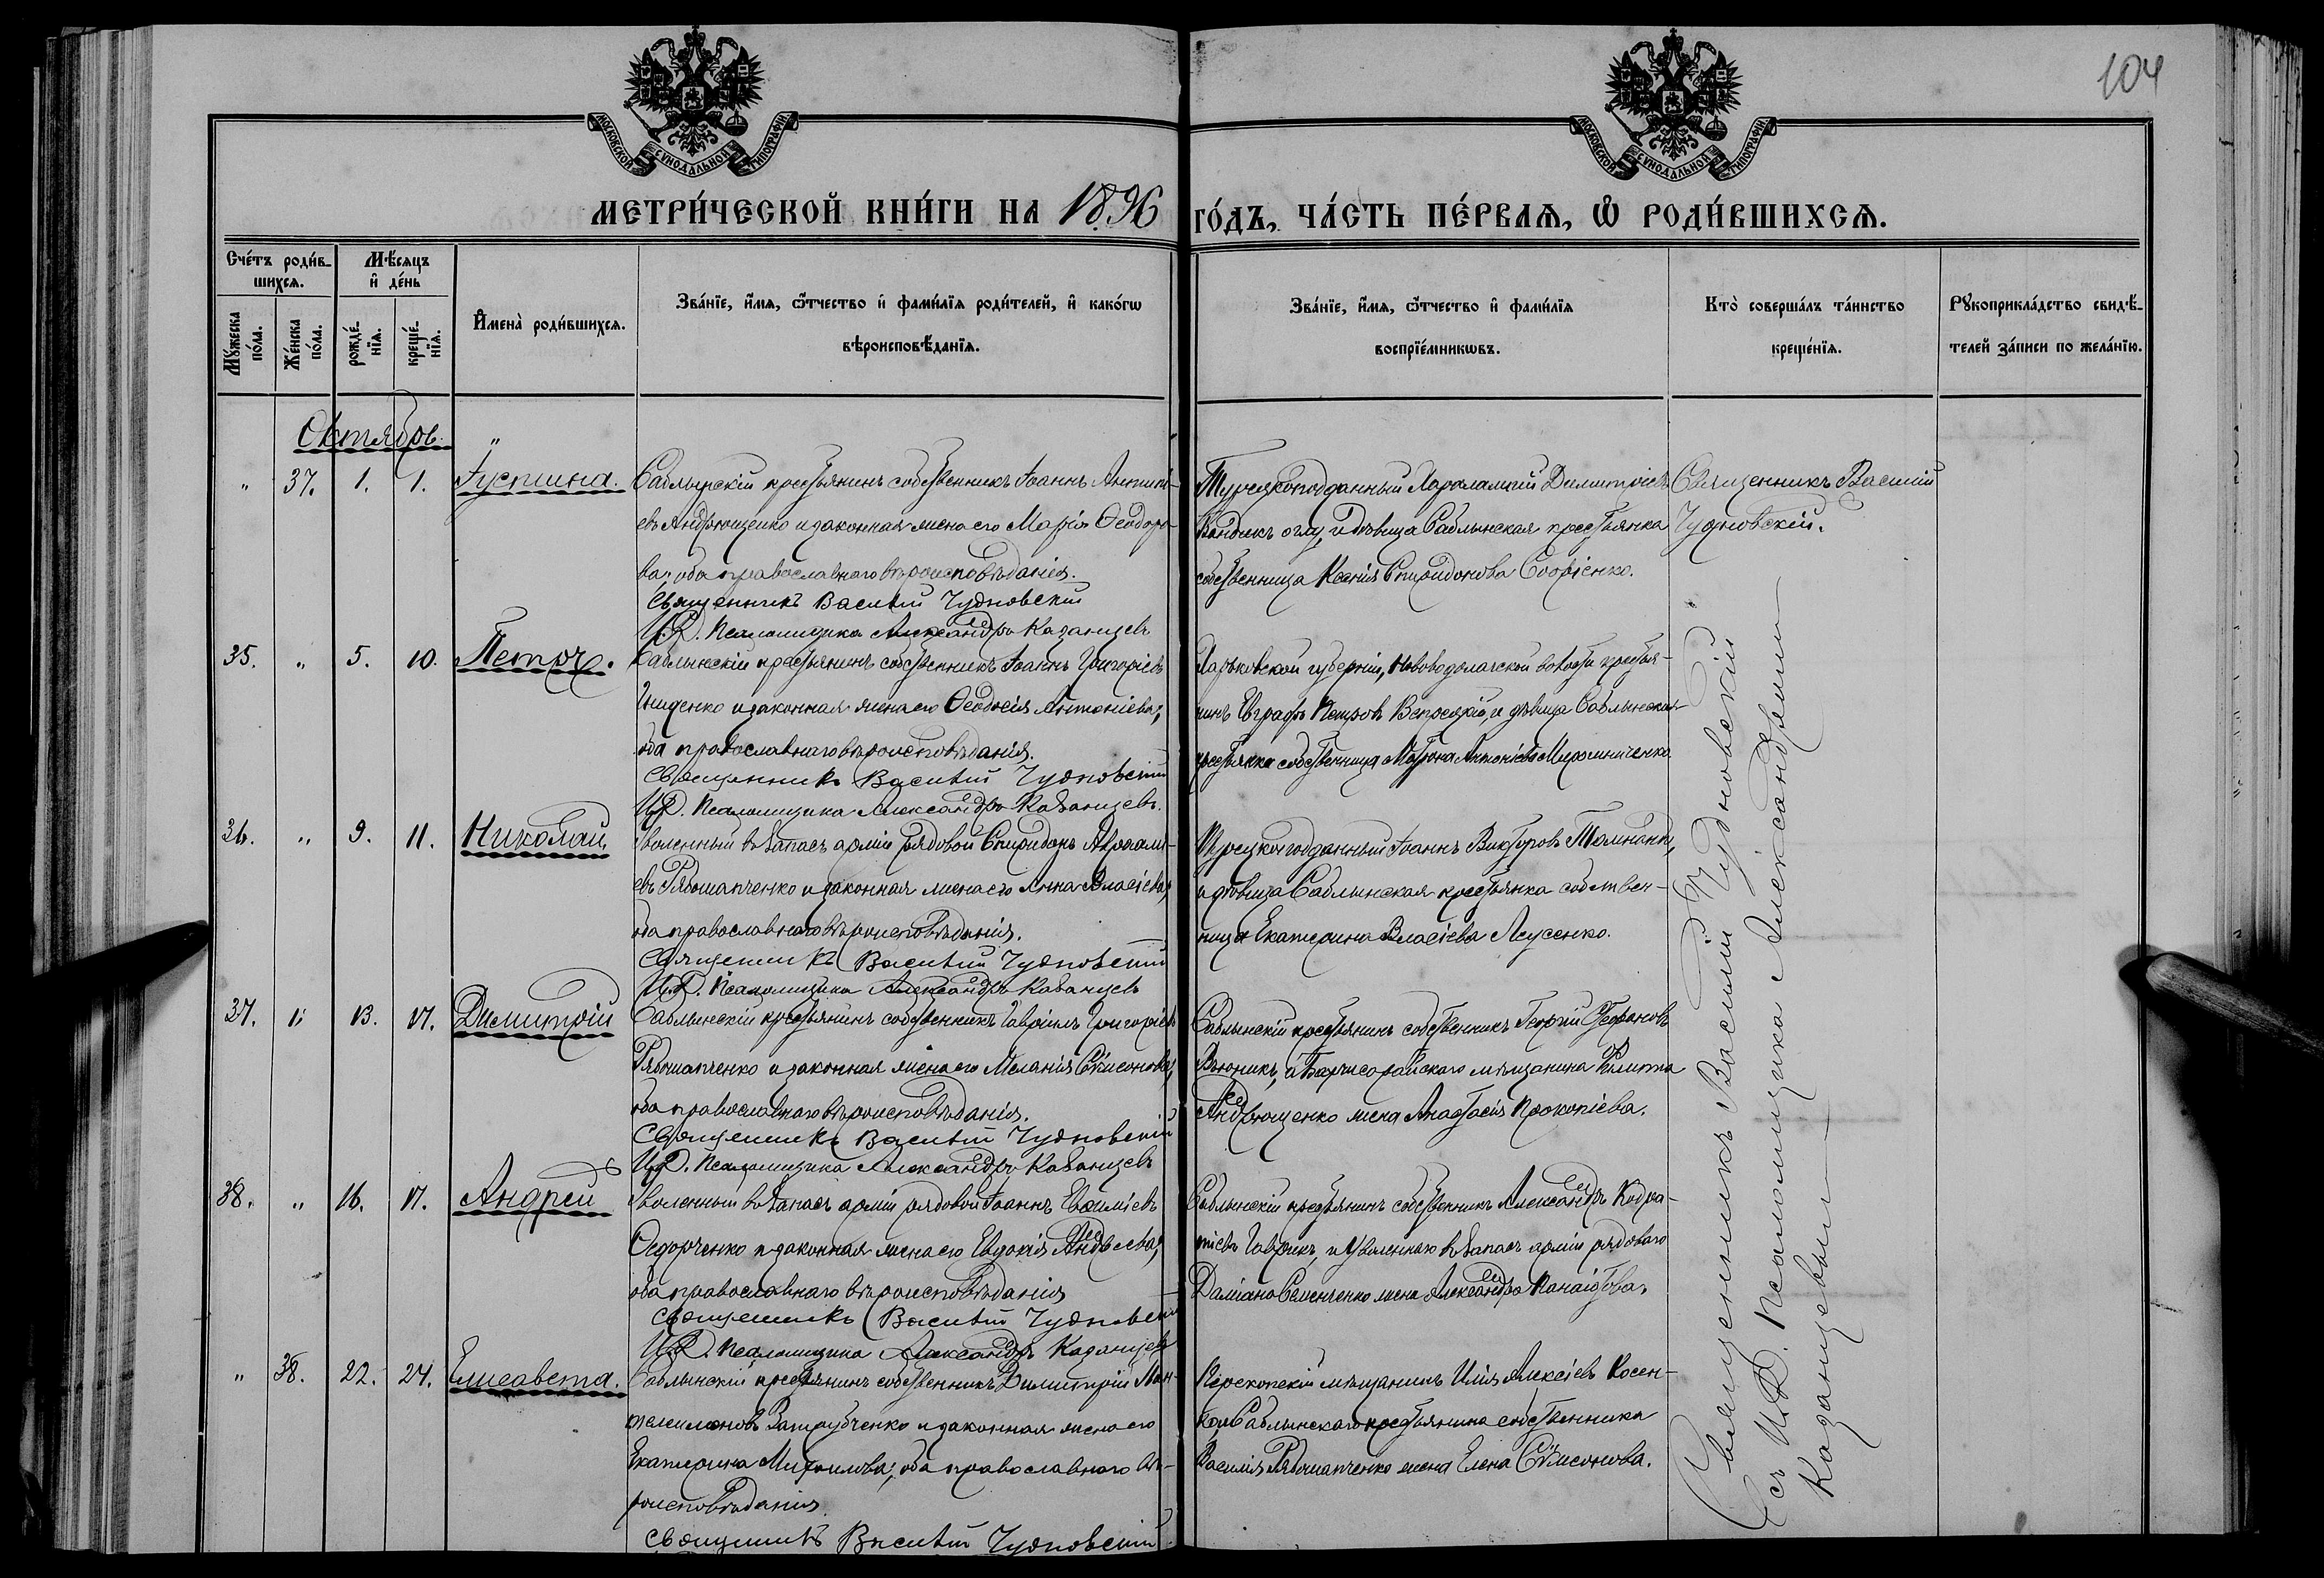 104
МОСКОВСКОЙ СѴНОДАЛЬНОЙ ТИПОГРАФІИ
МОСКОВСКОЙ СѴНОДАЛЬНОЙ ТИПОГРАФІИ
МЕТРИ́ЧЕСКОЙ КНИ́ГИ НА 1896 ГО́ДЪ, ЧА́СТЬ ПЕ́РВАЯ, Ѡ РОДИ́ВШИХСЯ.
Сче́тъ роди́в-
шихся.
Мѣ́сяцъ
и де́нь
Му́жеска
по́ла.
Же́нска
по́ла.
рожде́-
нія.
креще́-
нія.
Имена̀ роди́вшихся.
Зва́ніе, и́мя, ѻ́тчество и фами́лія роди́телей, и како́гѡ
вѣроисповѣ́данія.
Зва́ніе, и́мя, ѻ́тчество и фами́лія
воспріе́мникѡвъ.
Кто̀ соверша́лъ та́инство
креще́нія.
Рукоприкла́дство свидѣ́-
телей за́писи по жела́нію.
Октябрь. "
" 37. 1. 1. Іустина.
Саблынскій крестьянинъ собственникъ Іоаннъ Антоні-
евъ Андрющенко и законная жена его Марія Ѳеодоро-
ва, оба православнаго вѣроисповѣданія.
Священникъ Василій Чудновскій
И.Д. Псаломщика Александръ Казанцевъ
Турецкоподданный Харалампій Димитріевъ
оглу, и дѣвица Саблынская крестьянка
собственница Ксенія Спиридонова
Священникъ Василій
Чудновскій.
35. " 5. 10. Петръ.
Саблынскій крестьянинъ собственникъ Іоаннъ Григоріевъ
и законная жена его Ѳеодосія Антоніева,
оба православнаго вѣроисповѣданія.
Священникъ Василій Чудновскій
И.Д. Псаломщика Александръ Казанцевъ.
Харьковской губерніи, Нововодолажской волости крестья-
нинъ Евграфъ Петровъ и дѣвица Саблынская
крестьянка собственница Матрона Антоніева Мирошниченко.
36. " 9. 11. Николай
Уволенный въ запасъ арміи рядовой Спиридонъ Аврамі-
евъ Рябошапченко и законная жена его Анна Власіева,
оба православнаго вѣроисповѣданія.
Священникъ Василій Чудновскій
И.Д. Псаломщика Александръ Казанцевъ
Турецкоподданный Іоаннъ Викторовъ
и дѣвица Саблынская крестьянка собствен-
ница Екатерина Власіева Лусенко.
37. " 13. 17. Димитрій
Саблынскій крестьянинъ собственникъ Гавріилъ Григоріевъ
Рябошапченко и законная жена его Меланія Сѵмеонова,
оба православнаго вѣроисповѣданія.
Священникъ Василій Чудновскій
И.Д. Псаломщика Александръ Казанцевъ
Саблынскій крестьянинъ собственникъ Георгій Стефановъ
Вьюникъ, и мѣщанина Филиппа
Андрющенко жена Анастасія Прокопіева.
38. " 16. 17. Андрей
Уволенный въ запасъ арміи рядовой Іоаннъ Евѳиміевъ
Ѳедорченко и законная жена его Евдокія Андреева,
оба православнаго вѣроисповѣданія
Священникъ Василій Чудновскій
И.Д. Псаломщика Александръ Казанцевъ
Саблынскій крестьянинъ собственникъ Александръ Кодра-
тіевъ Гаврикъ, и Уволеннаго въ запасъ арміи рядоваго
Даміана Семенченко жена Александра Панаіотова.
" 38. 22. 24. Елисавета.
Саблынскій крестьянинъ собственникъ Димитрій Пан-
телеимоновъ и законная жена его
Екатерина Михаилова, оба православнаго вѣ-
роисповѣданія
Священникъ Василій Чудновскій
Перекопскій мѣщанинъ Илія Алексіевъ Косен-
ко, и Саблынскаго крестьянина собственника
Василія Рябошапченко жена Елена Сѵмеонова.
Священникъ Василій Чудновскій
съ И.Д. Псаломщика Александремъ
Казанцевым